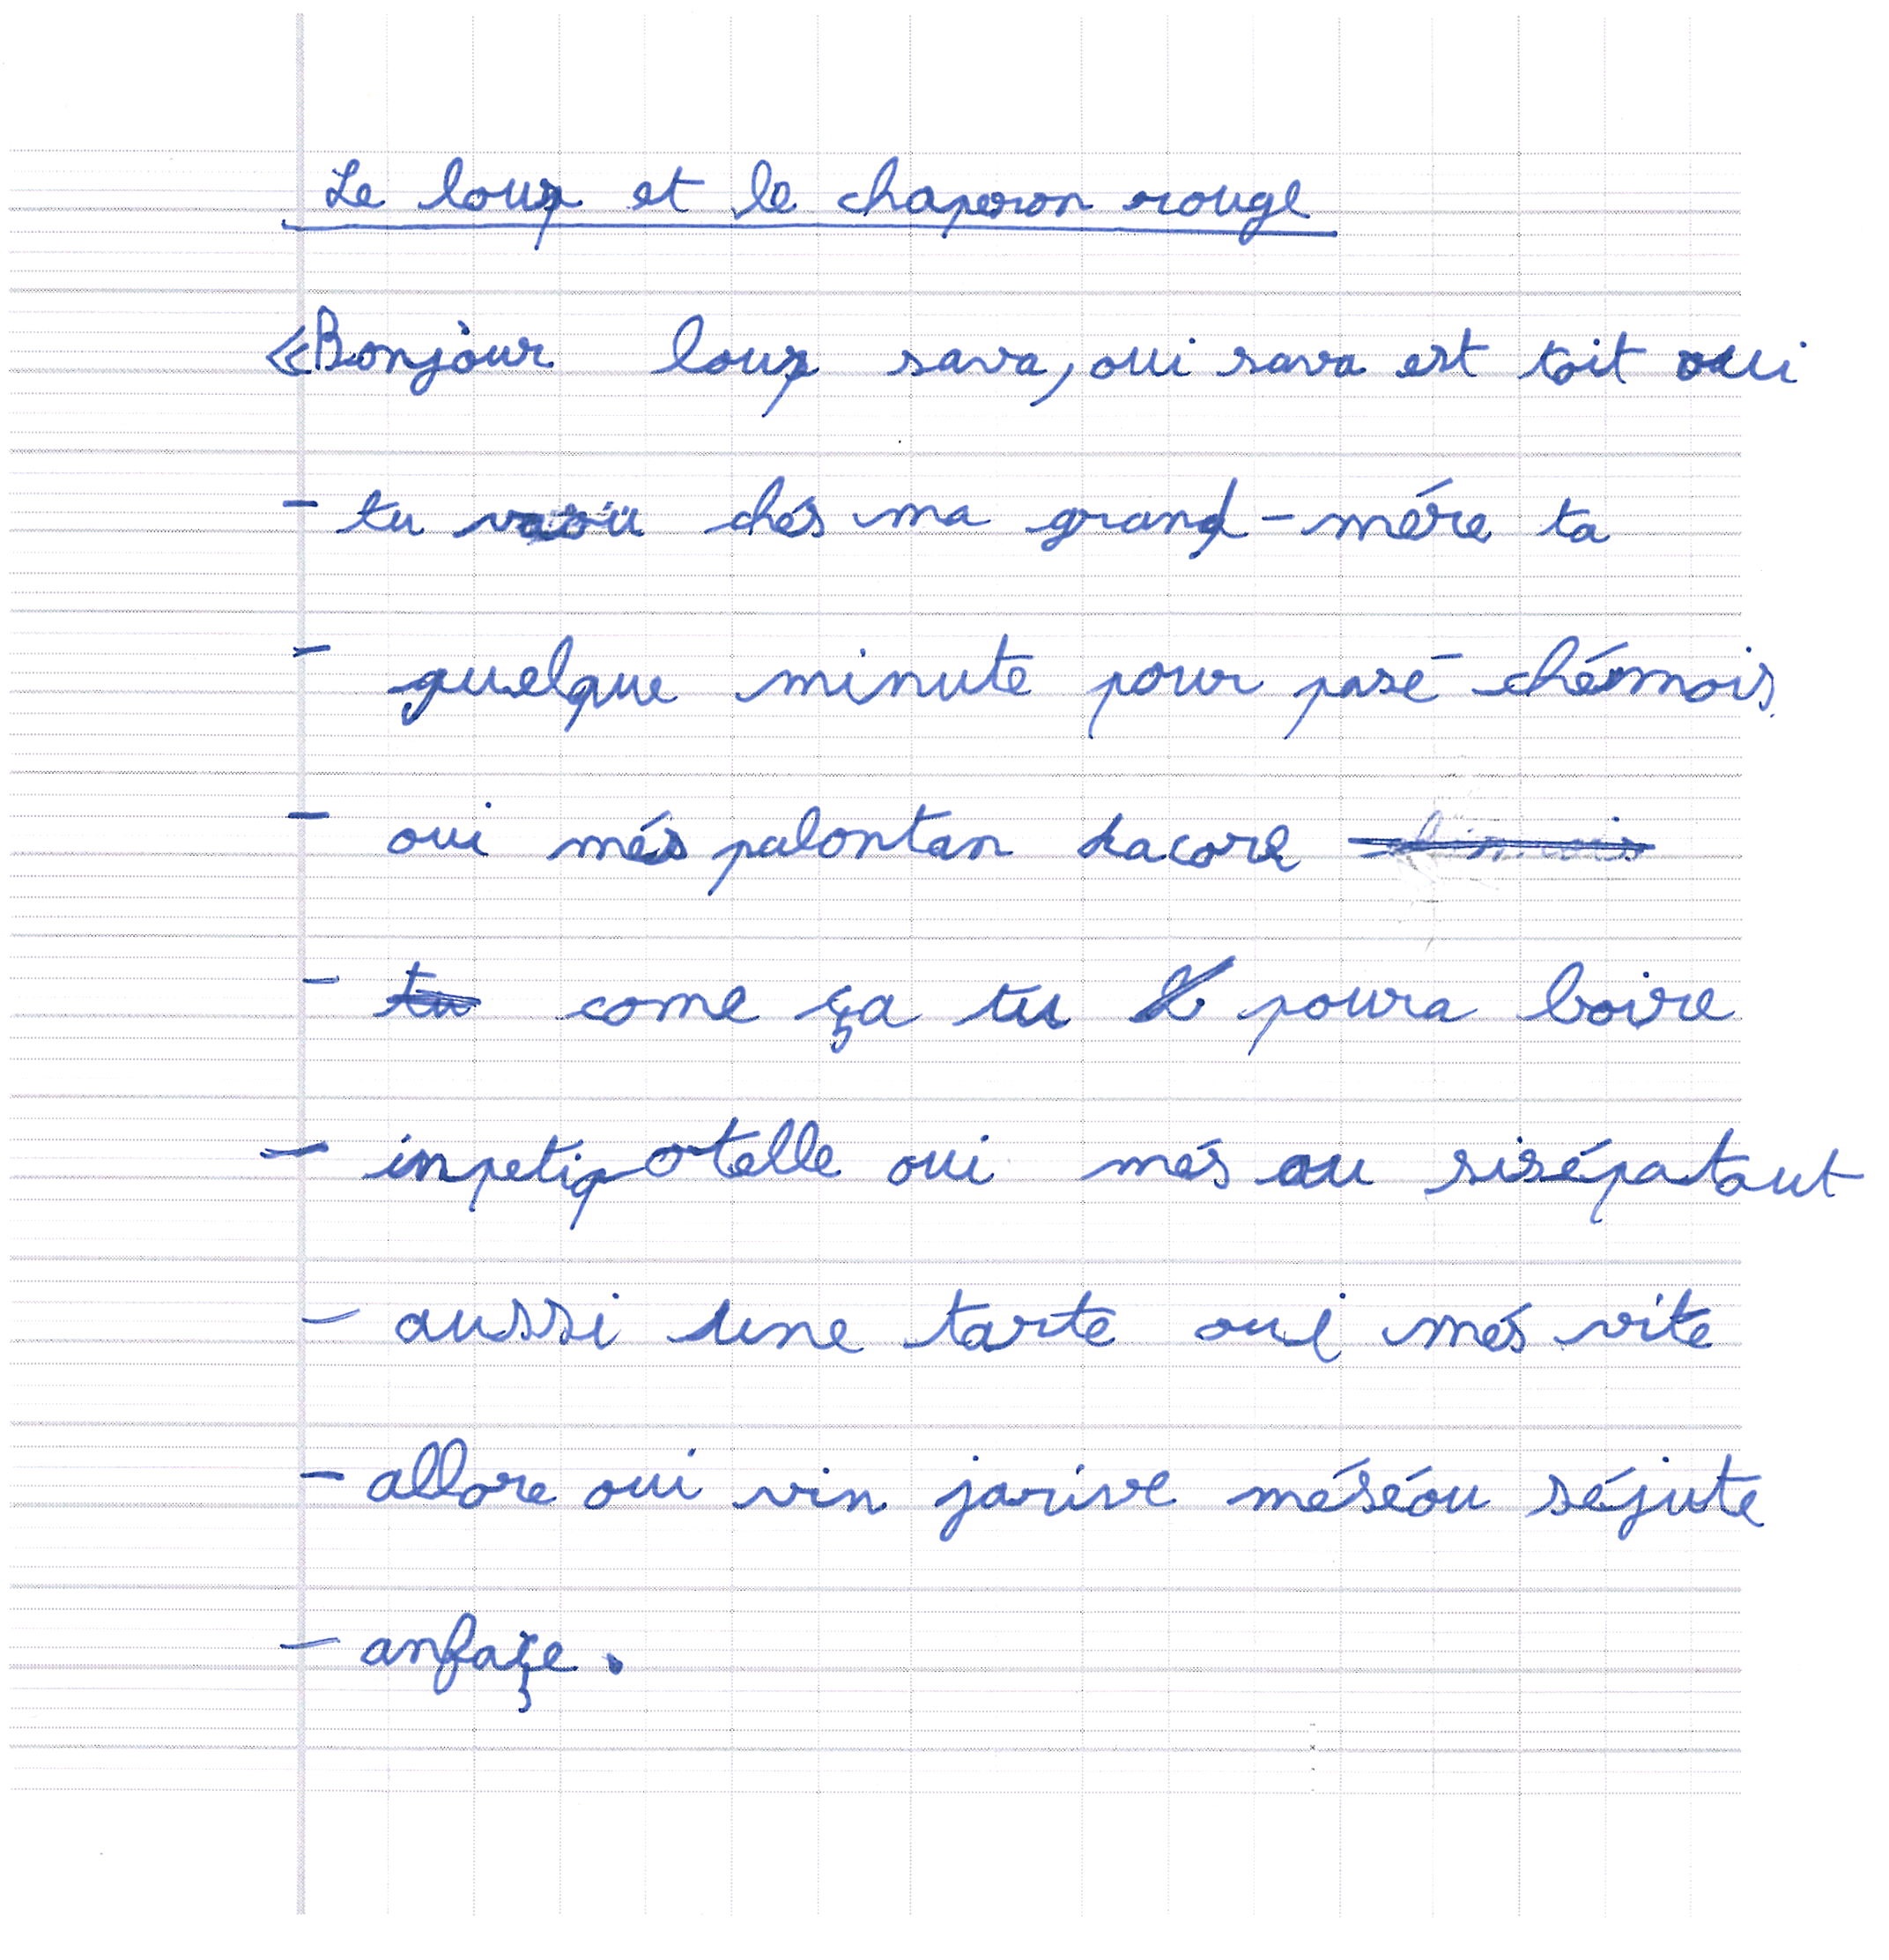 Le loup et le chaperon rouge
«Bonjour loup sava, oui sava est toit oui
- tu va où chés ma grand-mére ta
- quelque minute pour pasé chémois
- oui més palontan dacore
- tu come ça tu poura boire
- inpetipotelle oui més ou sisépatout
- aussi une tarte oui més vite
- allore oui vin jarive méséou séjute
- anfaçe.